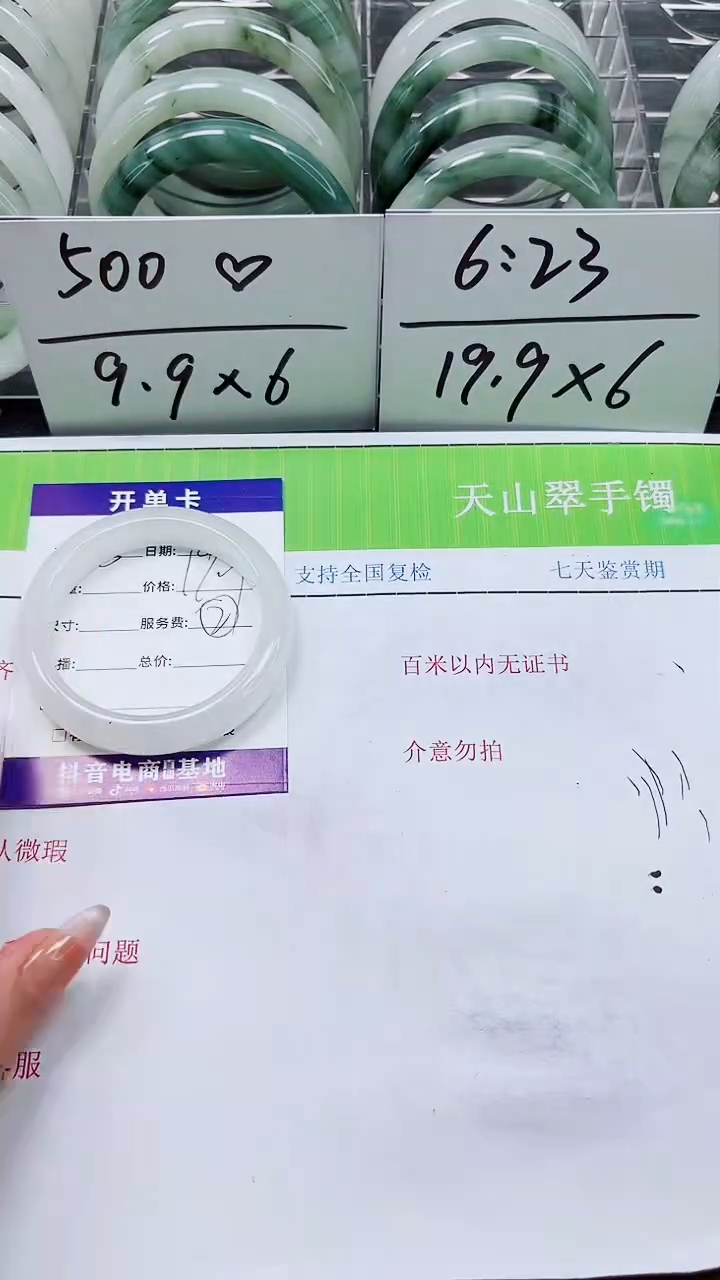 500 ♡
9.9×6
6:23
19.9×6
天山翠手镯
开单卡
日期:
支持全国复检
七天鉴赏期
价格:
寸:
服务费: 2
播:
总价:
百米以内无证书
介意勿拍
抖音电商基地
微瑕
问题
服